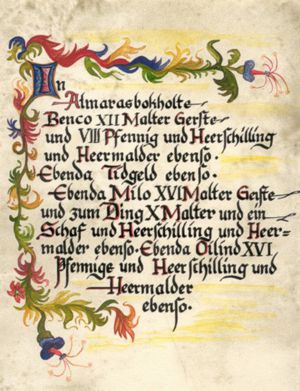 In
Almarasbokholte
Benco XII Malter Gerste
und VIII Pfennig und Heerschilling
und Heermalder ebenso.
Ebenda Tidgeld ebenso.
Ebenda Milo XVI Malter Gerste
und zum Ding X Malter und ein
Schaf und Heerschilling und Heer-
malder ebenso. Ebenda Oilind XVI
Pfennige und Heerschilling und
Heermalder
ebenso.